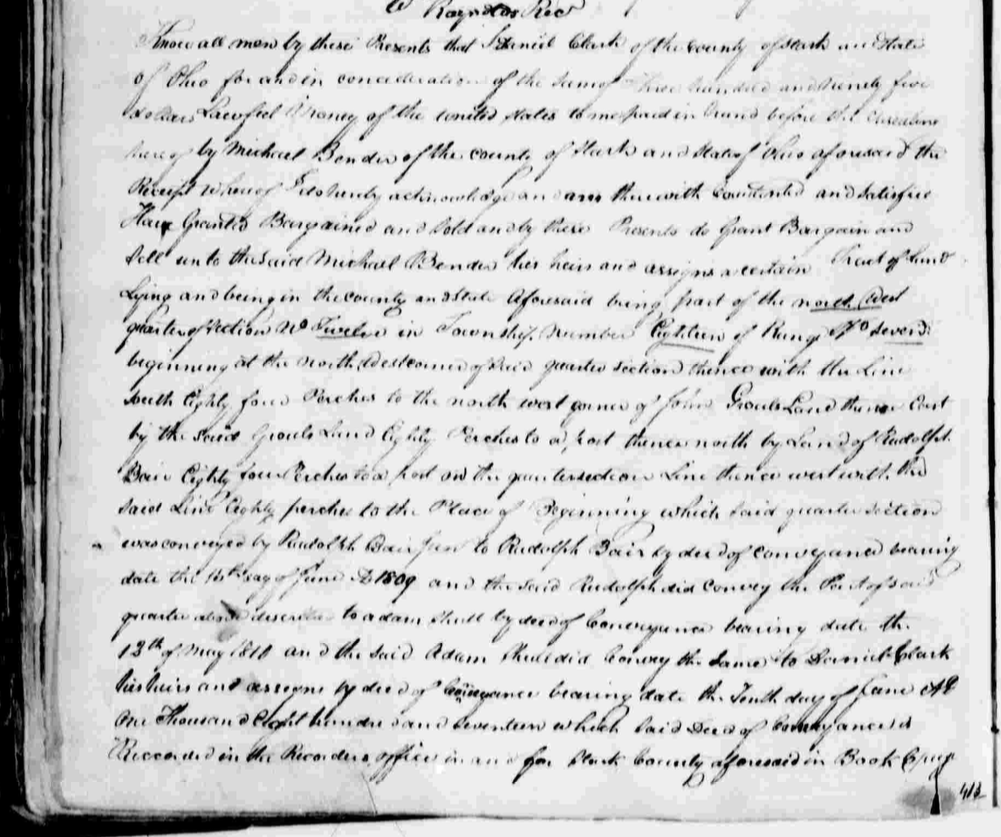 Reynolds Recd
Know all men by these Presents that I Daniel Clark of the county of Stark and State
of Ohio for and in concideration of the sum of Three hundred and Ninety five
dollars Lawful Money of the united States to me paid in hand before the
hereof by Michael Bender of the county of Stark and State of Ohio aforesaid the
Receipt whereof I do hereby acknowledge and am therewith Contented and satisfied
Have Granted Bargained and Sold and by these Presents do Grant Bargain and
Sell unto the said Michael Bender his heirs and assigns a certain Tract of Land
Lying and being in the county and State Aforesaid being part of the north West
quarter of Section No Twelve in Township Number Eighteen of Range No Seven
beginning at the north West corner of said quarter section thence with the Line
South Eighty four Perches to the north west corner of John Land thence East
by the said Land Eighty Perches to a post thence north by Land of Rudolph
Bair Eighty four Perches to a post on the quartersection Line thence west with the
said Line Eighty perches to the Place of Beginning which said quarter section
was conveyed by Rudolph Bair Jun to Rudolph Bair by deed of conveyance bearing
date the day of June AD 1809 and the said Rudolph did convey the Part of said
quarter above described to adam Shull by deed of Conveyance bearing date the
13th of May 1810 and the said Adam Shull did Convey the Same to Daniel Clark
his heirs and assigns by deed of Conveyance bearing date the Tenth day of June AD
One Thousand Eight hundred and Seventeen which said Deed of Conveyance is
Reccorded in the Recorders office in and for Stark County aforesaid in Book C page
413